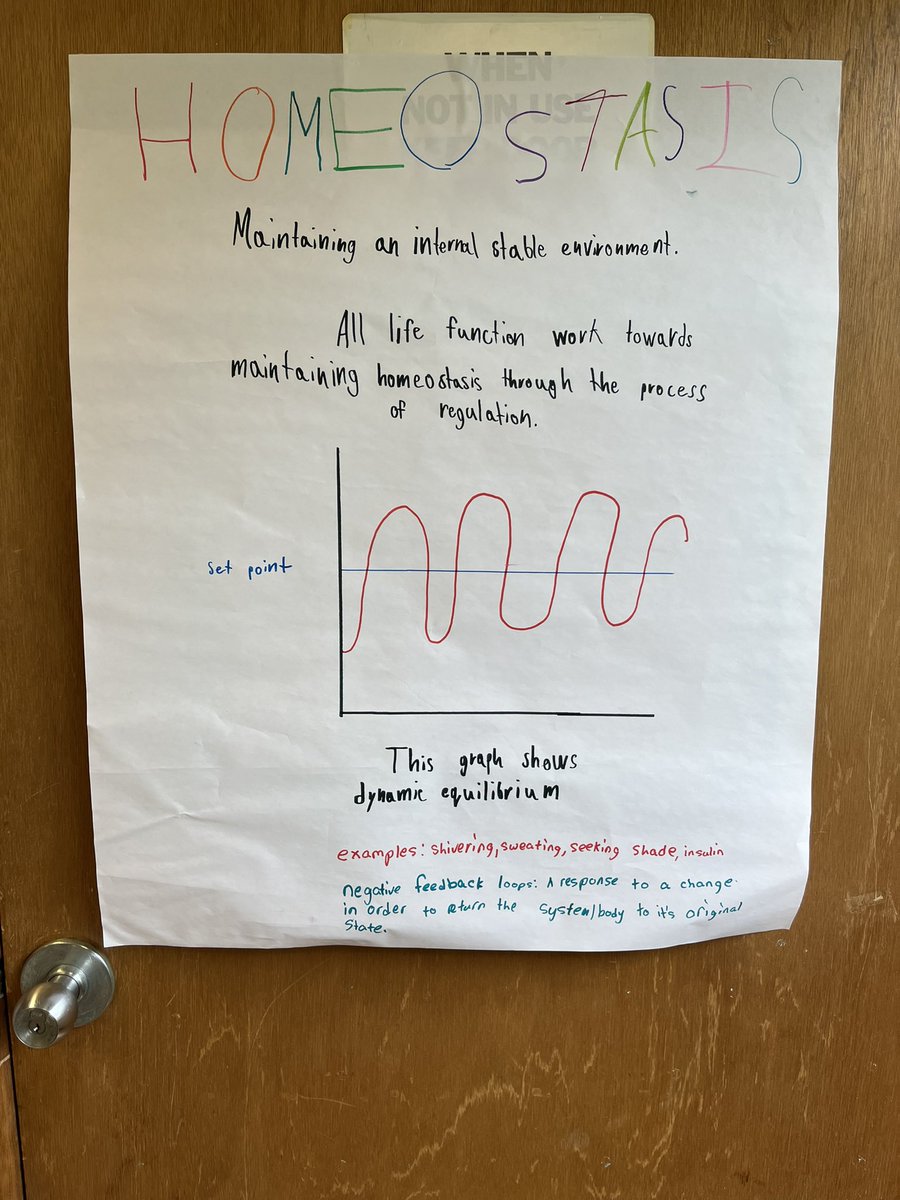 WHEN
NOT IN USE
HOMEOSTASIS
Maintaining an internal stable environment.
All life function work towards
maintaining homeostasis through the process
of regulation.
set point
This graph shows
dynamic equilibrium
examples: shivering, sweating, seeking shade, insulin
negative feedback loops: A response to a change
in order to return the system/body to it's original
state.